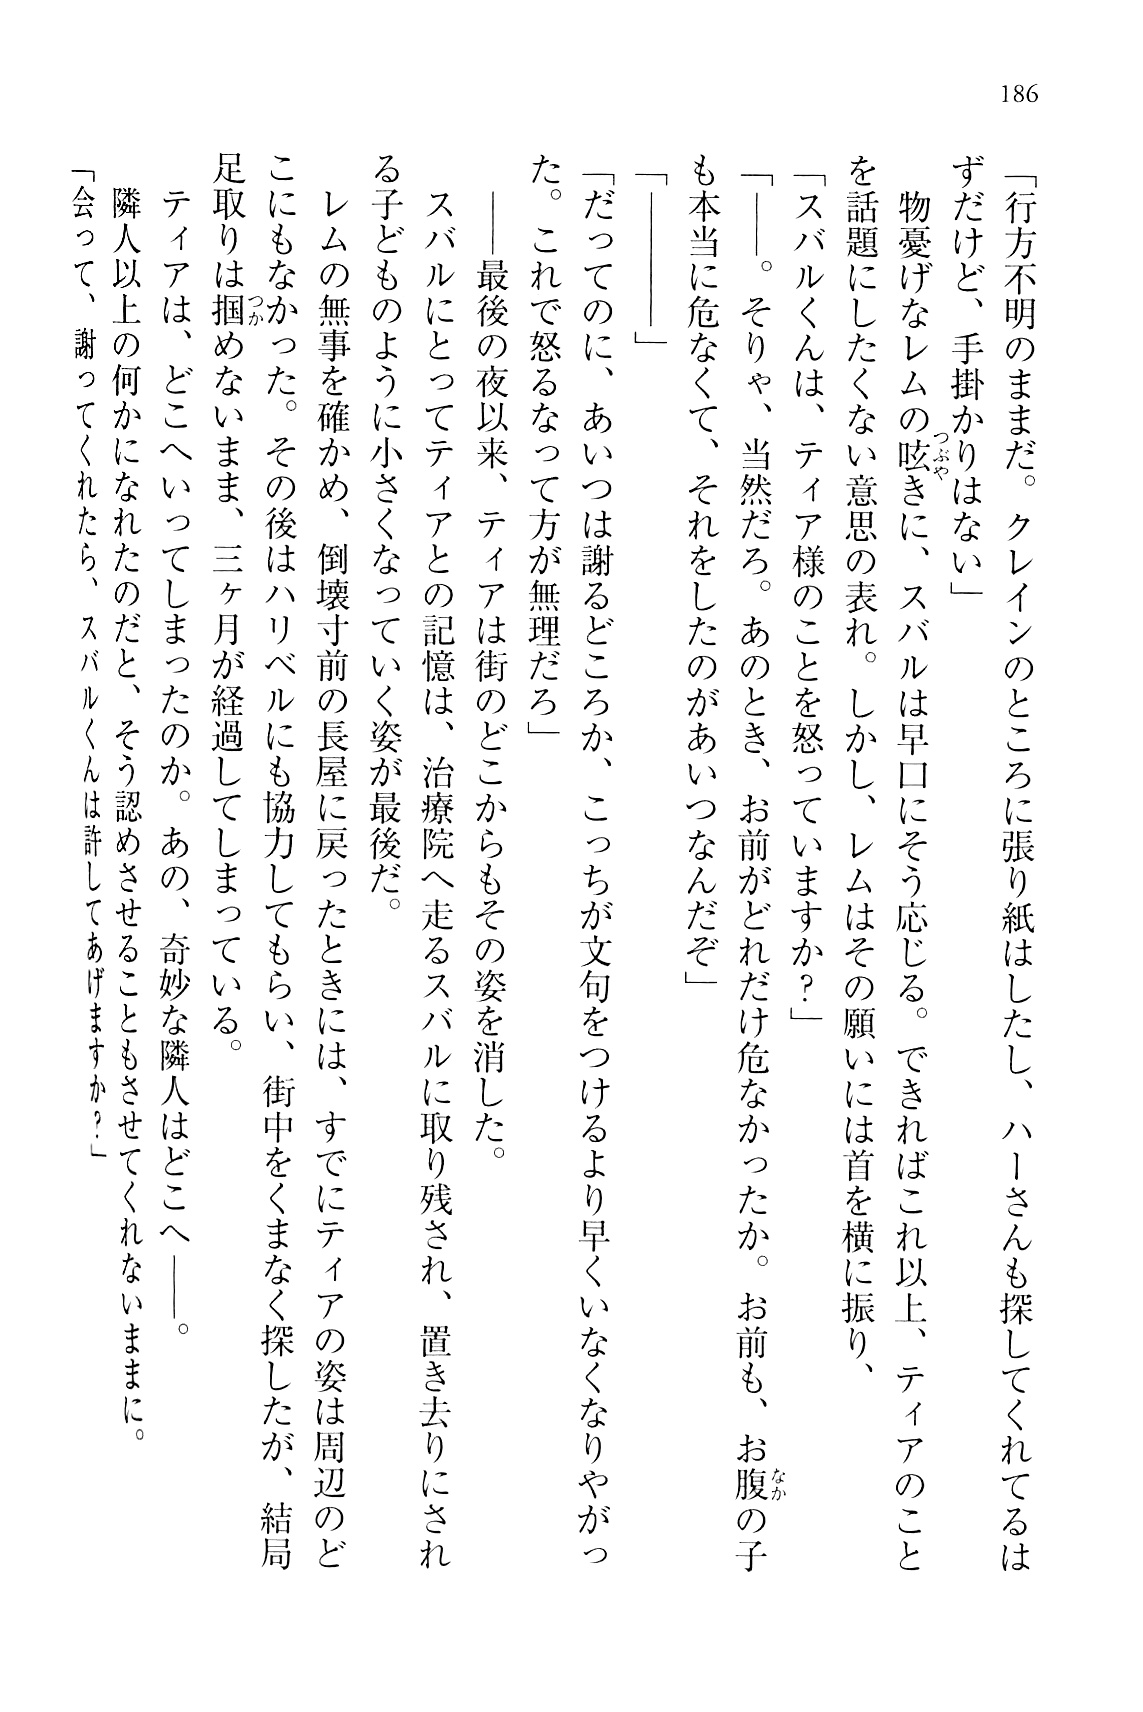 186
「行方不明のままだ。クレインのところに張り紙はしたし、ハーさんも探してくれてるは
ずだけど、手掛かりはない」
　物憂げなレムの呟きに、スバルは早口にそう応じる。できればこれ以上、ティアのこと
を話題にしたくない意思の表れ。しかし、レムはその願いには首を横に振り、
「スバルくんは、ティア様のことを怒っていますか？」
「――。そりゃ、当然だろ。あのとき、お前がどれだけ危なかったか。お前も、お腹の子
も本当に危なくて、それをしたのがあいつなんだぞ」
「――――」
「だってのに、あいつは謝るどころか、こっちが文句をつけるより早くいなくなりやがっ
た。これで怒るなって方が無理だろ」
　――最後の夜以来、ティアは街のどこからもその姿を消した。
　スバルにとってティアとの記憶は、治療院へ走るスバルに取り残され、置き去りにされ
る子どものように小さくなっていく姿が最後だ。
　レムの無事を確かめ、倒壊寸前の長屋に戻ったときには、すでにティアの姿は周辺のど
こにもなかった。その後はハリベルにも協力してもらい、街中をくまなく探したが、結局
足取りは掴めないまま、三ヶ月が経過してしまっている。
　ティアは、どこへいってしまったのか。あの、奇妙な隣人はどこへ――。
　隣人以上の何かになれたのだと、そう認めさせることもさせてくれないままに。
「会って、謝ってくれたら、スバルくんは許してあげますか？」